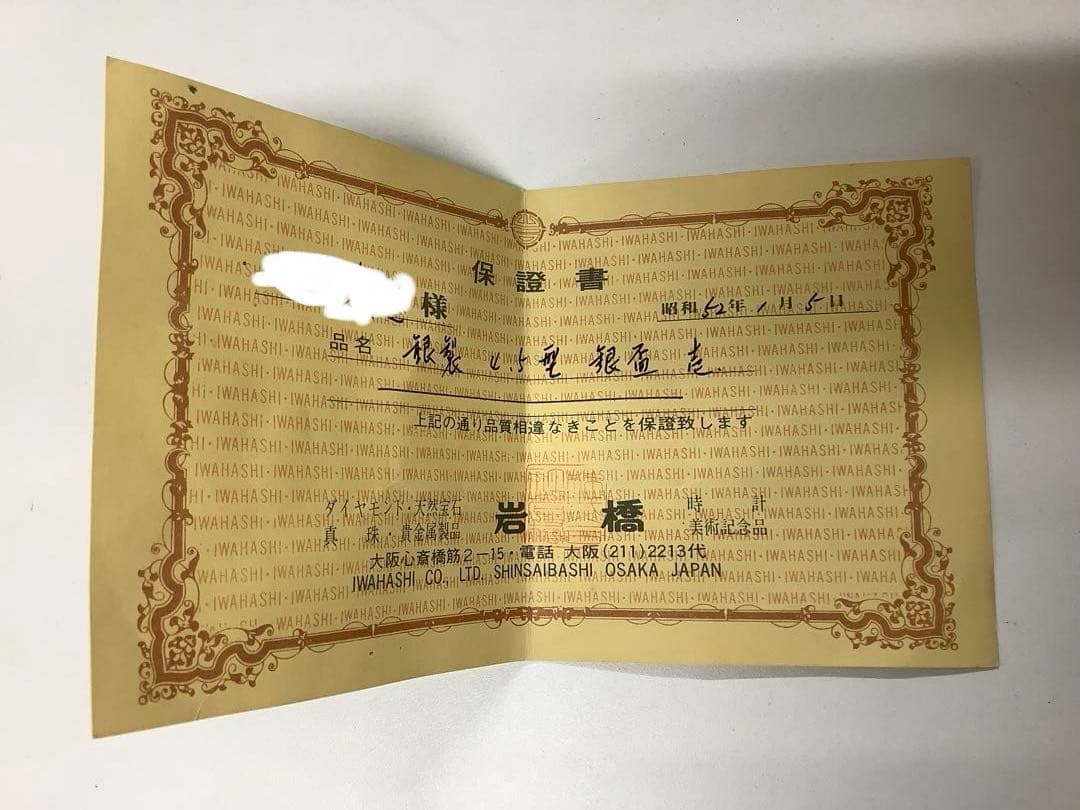 保證書
様
昭和52年1月5日
品名 銀製 4.5型 銀盃 壱
上記の通り品質相違なきことを保證致します
ダイヤモンド・天然宝石
真珠・貴金属製品
岩橋
時計
美術記念品
大阪心斎橋筋2-15・電話 大阪(211)2213代
IWAHASHI CO., LTD. SHINSAIBASHI OSAKA JAPAN